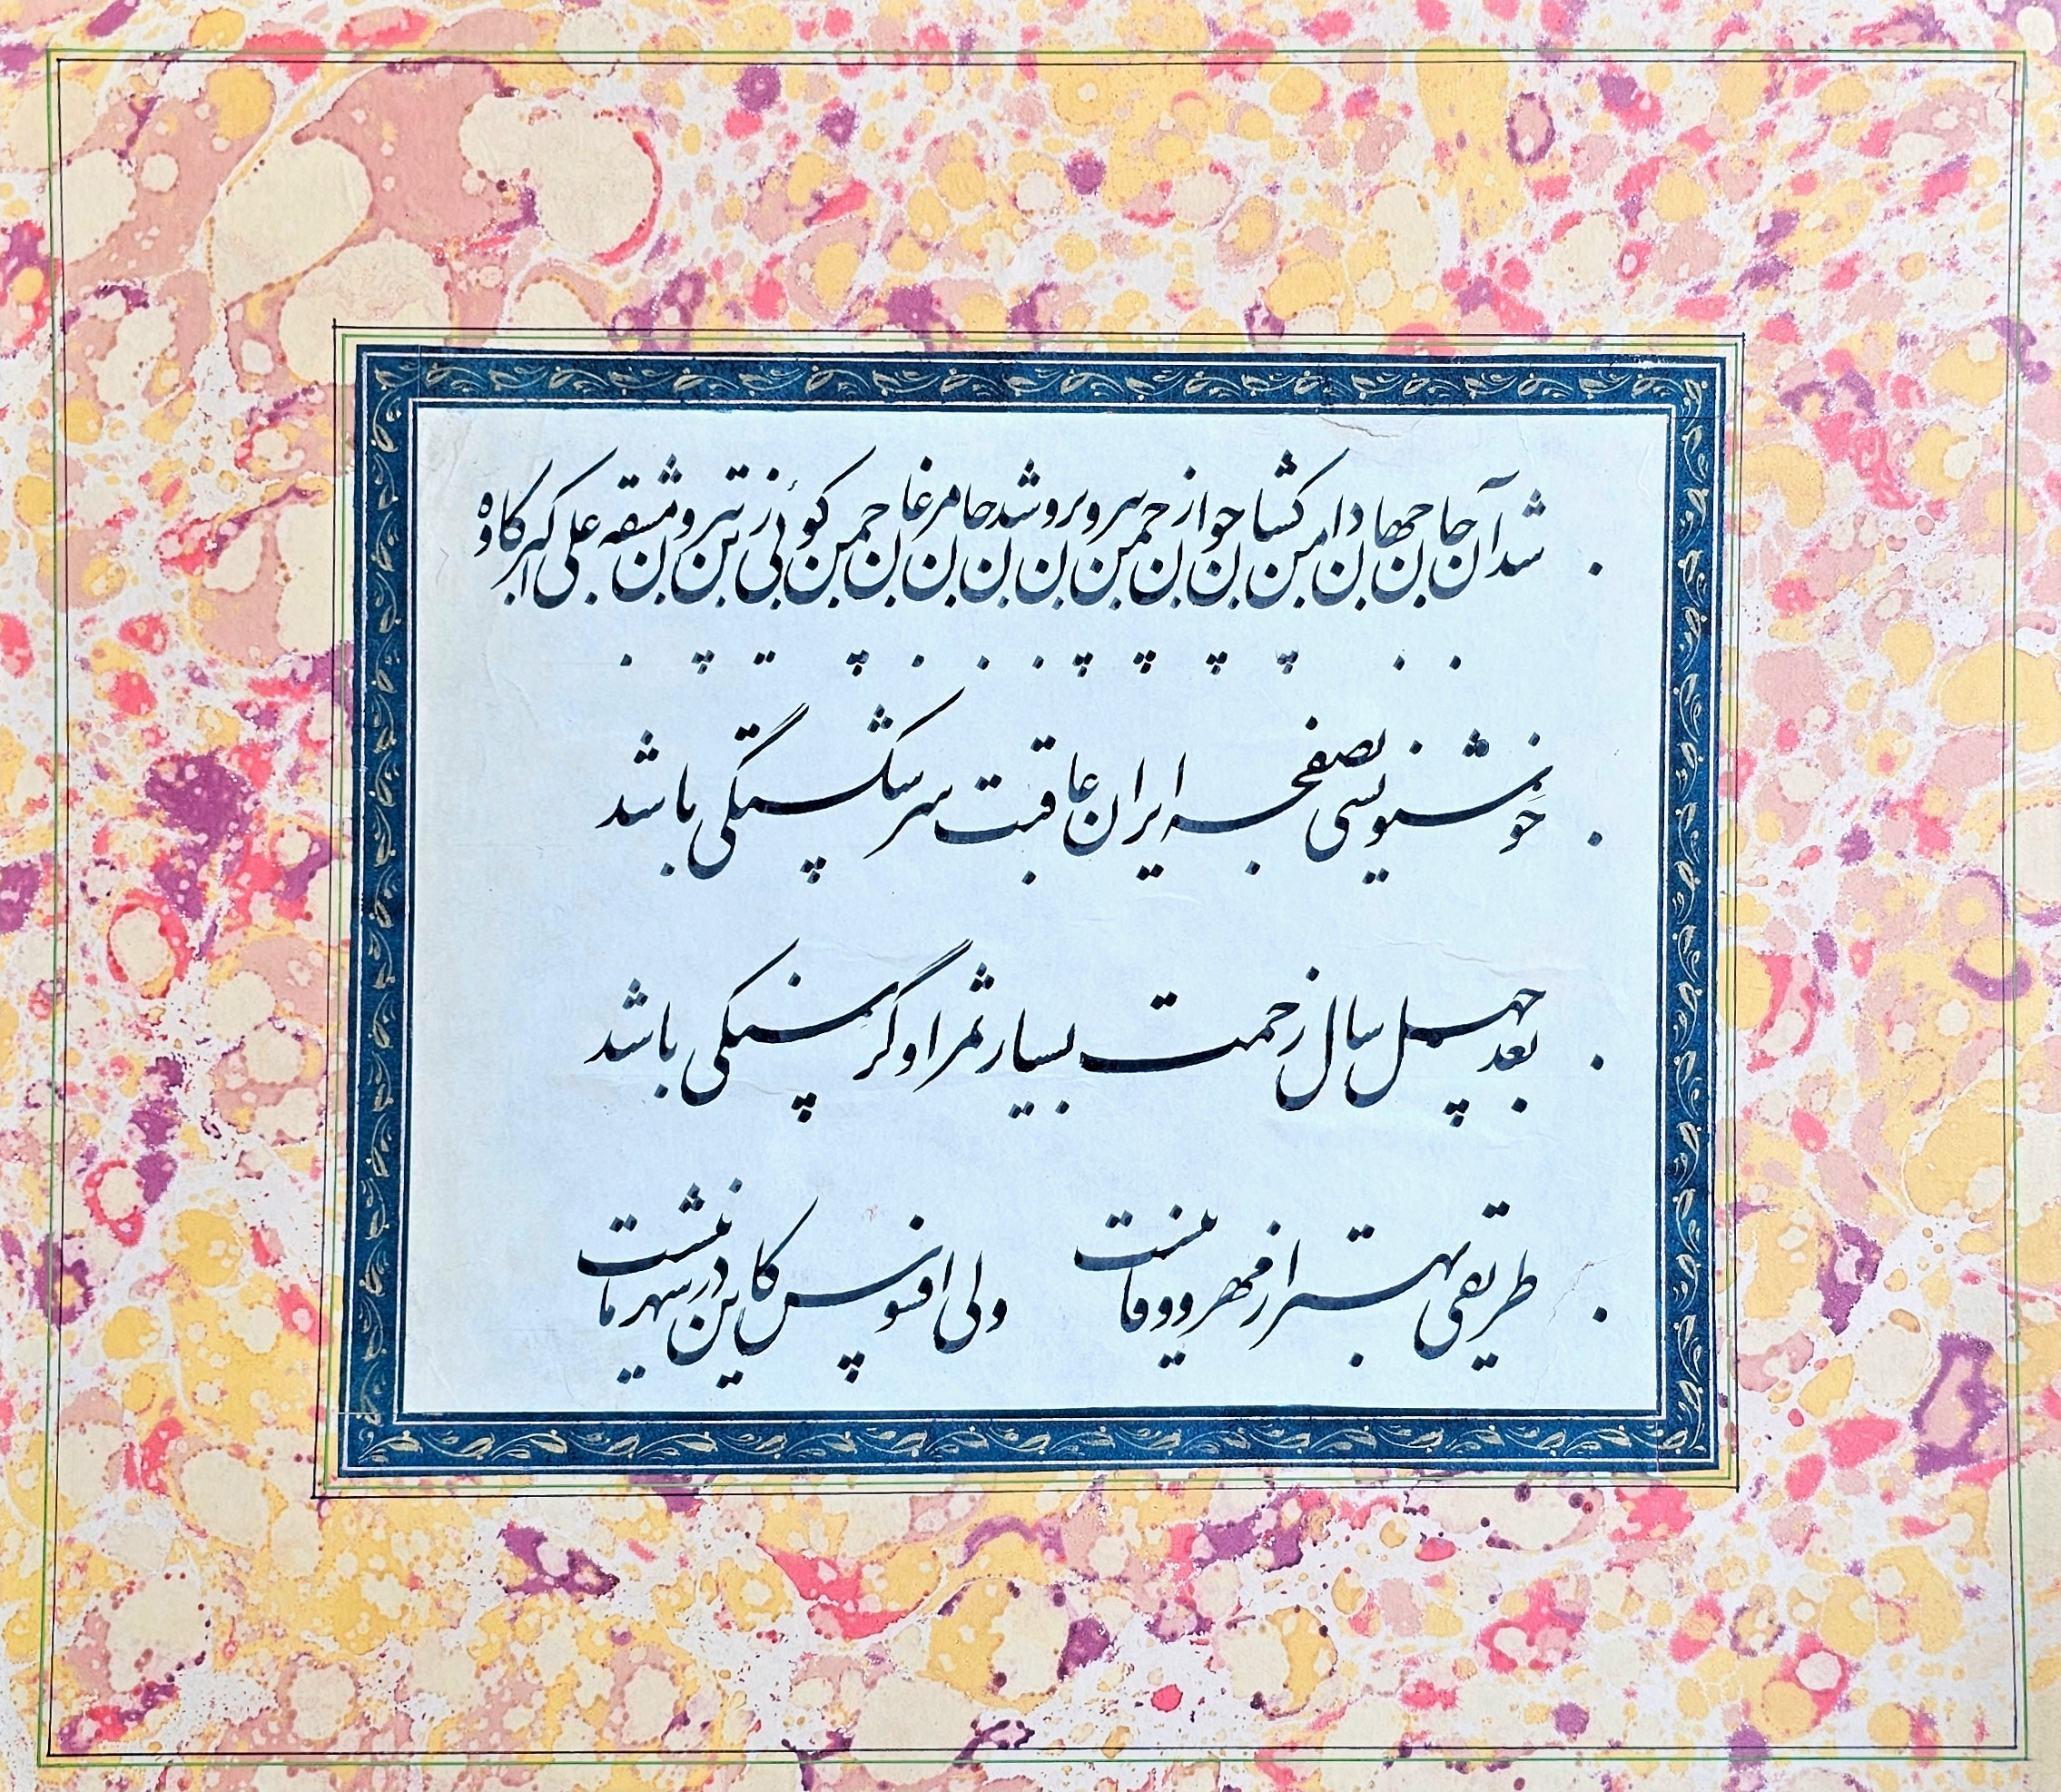 شد آن جان جهان دامن کشان چون از چمن بیرون روان شد جان مرغان چمن کوئی ز تن بیرون مشقه علی اکبر کاوه
خوشنویسی بصفحه ایران عاقبت سرشکستگی باشد
بعد چهل سال زحمت بسیار ثمر او گرسنگی باشد
طریقی بهتر از مهر و وفا نیست ولی افسوس کاین در شهر ما نیست